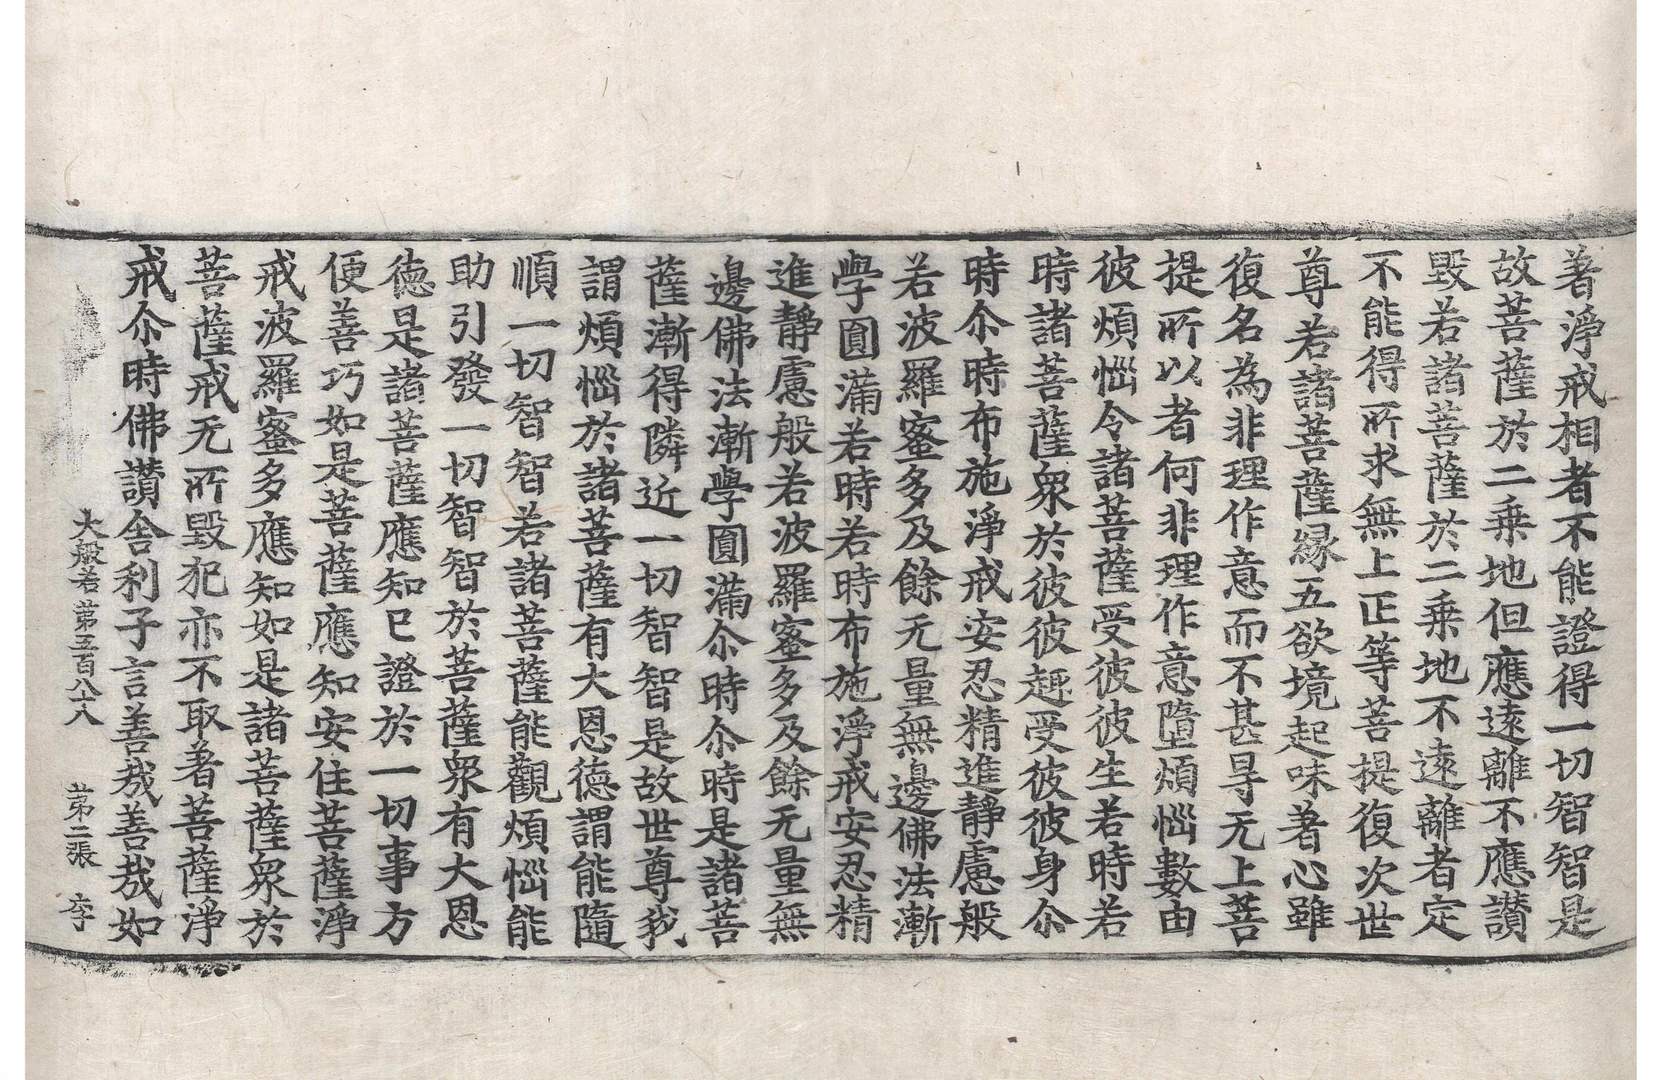 著淨戒相者不能證得一切智智是
故菩薩於二乗地但應遠離不應讃
毀若諸菩薩於二乗地不遠離者定
不能得所求無上正等菩提復次世
尊若諸菩薩縁五欲境起味著心雖
復名為非理作意而不甚㝵无上菩
提所以者何非理作意墮煩惱數由
彼煩惱令諸菩薩受彼彼生若時若
時諸菩薩衆於彼彼趣受彼彼身尒
時尒時布施淨戒安忍精進靜慮般
若波羅蜜多及餘无量無邊佛法漸
學圓滿若時若時布施淨戒安忍精
進靜慮般若波羅蜜多及餘无量無
邊佛法漸學圓滿尒時尒時是諸菩
薩漸得隣近一切智智是故世尊我
謂煩惱於諸菩薩有大恩德謂能隨
順一切智智若諸菩薩能觀煩惱能
助引發一切智智於菩薩衆有大恩
德是諸菩薩應知已證於一切事方
便善巧如是菩薩應知安住菩薩淨
戒波羅蜜多應知如是諸菩薩衆於
菩薩戒无所毀犯亦不取著菩薩淨
戒尒時佛讃舍利子言善哉善哉如
大般若第五百八十八 第二張 李